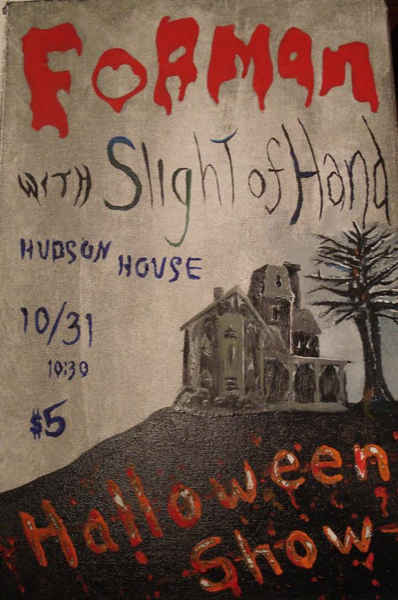 FORMAN
WITH Slight of Hand
HUDSON HOUSE
10/31
10:30
$5
Halloween
Show